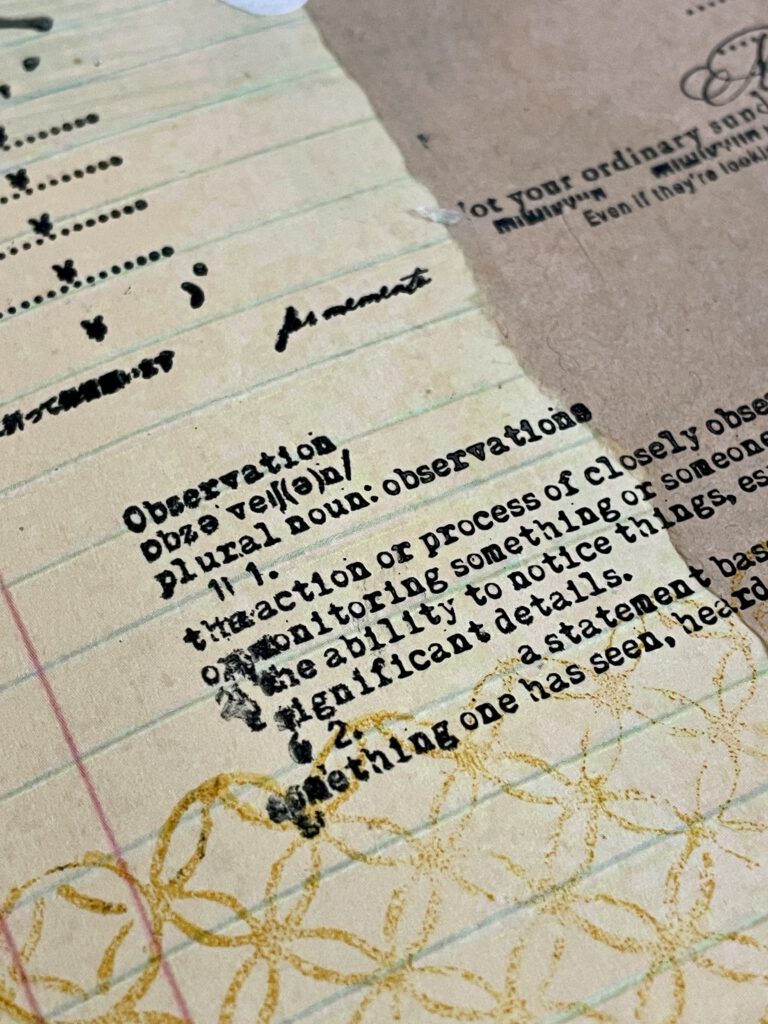 A
ot your ordinary sund
Even if they're lookin
for moments
折って
Observation
ɒbzəˈveɪʃ(ə)n/
plural noun: observations
1.
the action or process of closely obse
or monitoring something or someone
the ability to notice things, es
significant details.
2. a statement bas
something one has seen, heard